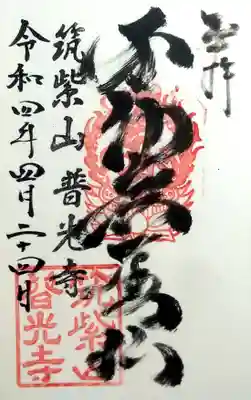 奉拝
不動明王
筑紫山 普光寺
令和四年四月二十四日
筑紫山
普光寺